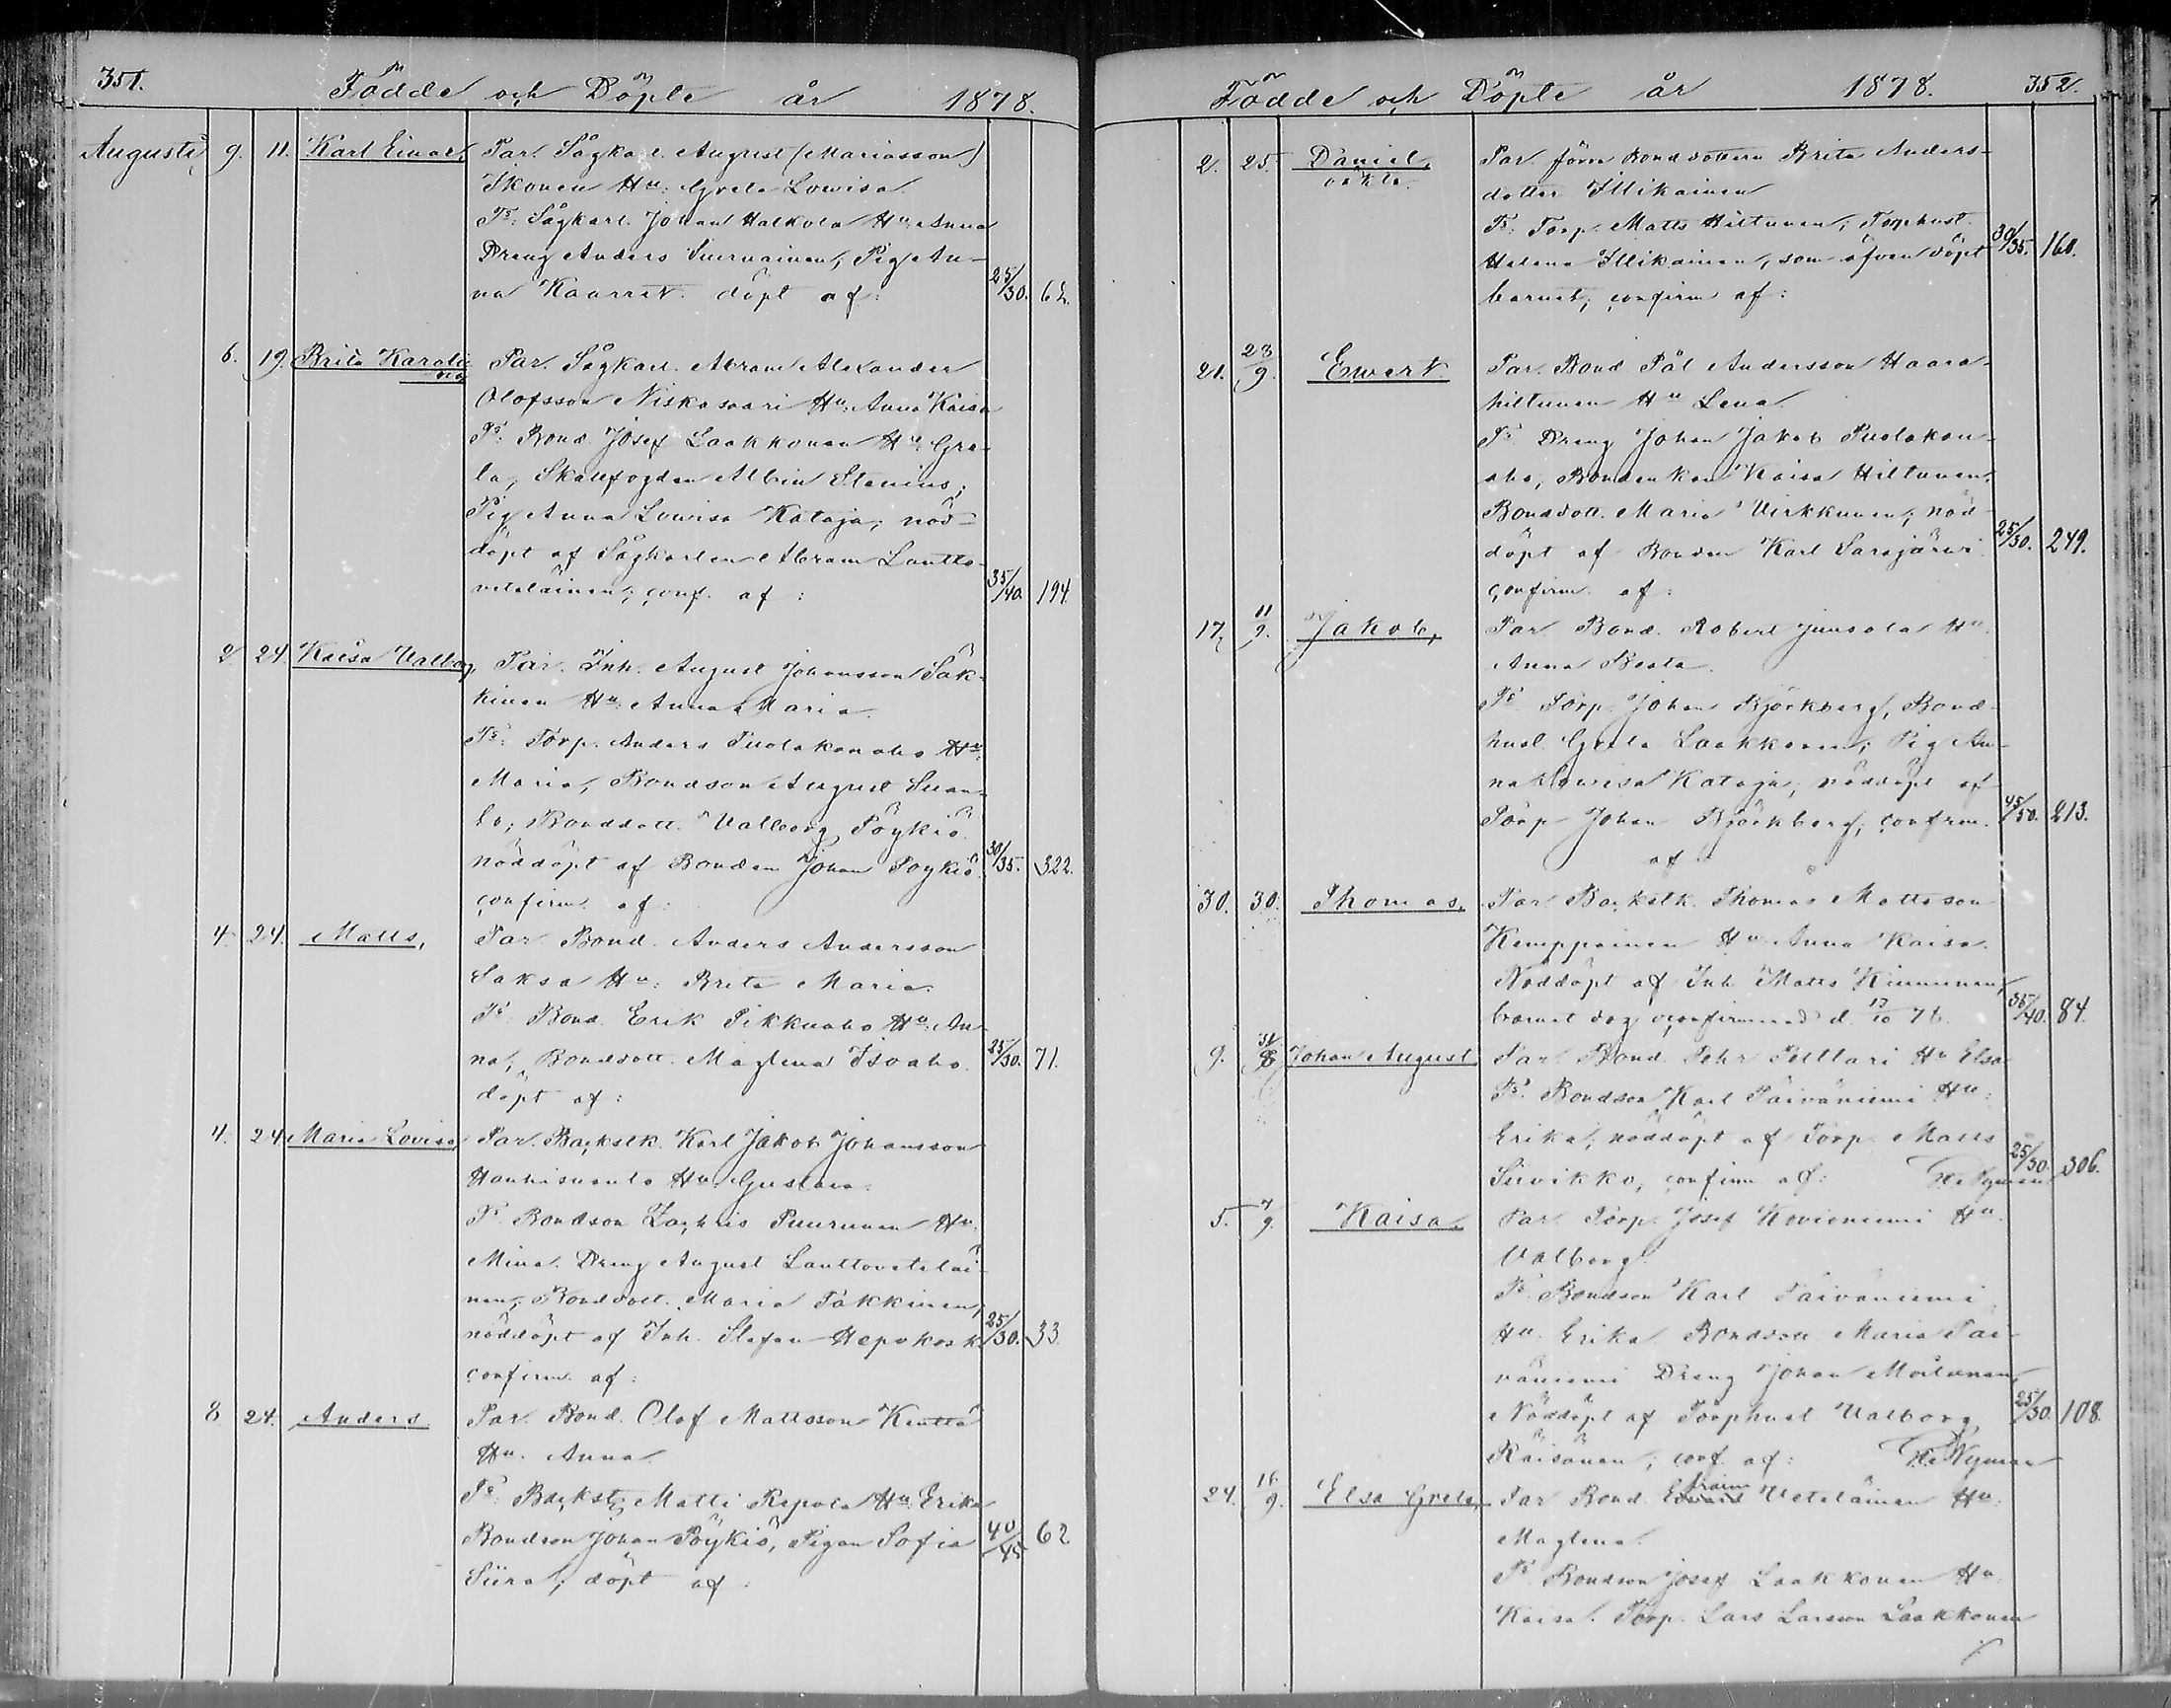 351.
Födde och Döpte år 1878.
Augusti 9. 11. Karl Einar, Par. Sågkarl. August (Mariasson)
Ikonen Hu: Greta Lowisa.
Ts: Sågkarl. Johan Halkola Hu: Anna
Dreng Anders Suurnainen, Pig An-
na Kaarret. döpt af: 25/30.
6. 19. Brita Karoli- Par. Sågkarl. Abram Alexander
na
Olofsson Niskasaari Hu: Anna Kaisa
Ts: Bond. Josef Laakkonen Hu: Gre-
ta, Skallfogden Albin Stenius;
Pig Anna Lowisa Kataja; nöd-
döpt af Sågkarlen Abram Lautto-
veteläinen; conf. af: 35/40. 194.
2 24 Kaisa Valborg, Par. Inh. August Johansson Säk-
kinen Hu: Anna Maria.
Ts: Torp. Anders Puolakanaho Hu:
Maria, Bondson August
Bonddott. Valborg Pöykiö.
nöddöpt af Bonden Johan Poykiö. 30/35. 322.
confirm. af:
4. 24. Matts, Par. Bond. Anders Andersson
Saksa Hu: Brita Maria.
Ts. Bond. Erik Pikkuaho Hu: An-
na; Bonddott. Maglena Isoaho. 25/30. 71.
döpt af:
4. 24. Maria Lovisa, Par. Backstk. Karl Jakob Johansson
Hankisuanto Hu: Gustava.
Ts. Bondson Zachris Puurunen Hu:
Mina. Dreng August Lauttovetelai-
nen; Bonddott. Maria Säkkinen,
nöddöpt af Inh. Stefan Hepokosk. 25/30. 33.
confirm. af:
8 24. Anders Par. Bond. Olof Mattsson Kenttä
Hu. Anna.
Ts: Backst. Matti Repola Hu: Erika
Bondson Johan Pöykiö, Pigan Sofia 40/45 62
Siira; döpt af:
Födde och Döpte år 1878. 352.
2. 25. Daniel, Par. förra Bonddottern Brita Anders-
oäkta.
dotter Illikainen
Ts: Torp. Matts Hiltunen; Torphust.
Helena Illikainen, som äfven döpt 30/35. 160.
barnet; confirm af:
21. 23/9. Ewert. Par. Bond Pål Andersson Haara-
hiltunen Hu Lena.
Ts Dreng Johan Jakob Puolakan-
aho, Bondenkan Kaisa Hiltunen.
Bonddott. Maria Virkkunen; nöd-
döpt af Bonden Karl Sarajärvi. 25/30. 249.
confirm. af:
17, 11/9. Jakob, Par Bond. Robert Juusola Hu.
Anna Beata.
Ts Torp. Johan Björkberg, Bond-
hust. Greta Laakkonen; Pig An-
na Lowisa Kataja, nöddöpt af
Torp Johan Björkberg, confirm. 45/50. 213.
af:
30. 30. Thomas, Par. Backstk. Thomas Mattsson
Kemppainen Hu Anna Kaisa.
Nöddöpt af Inh Matts Kinnunen,
barnet dog oconfirmerad d. 35/40. 84.
9. Johan August Par. Bond. Pehr Peltlari Hu Elsa
Ts. Bondson Karl Päiväniemi Hu:
Erika; nöddöpt af Torp. Matts
Sirvikko, confirm af: Nyman 25/30. 306.
5. 7/9. Kaisa. Par. Torp. Josef Kovioniemi Hu.
Valborg.
Ts. Bondson Karl Päiväniemi
Hu. Erika. Bonddott Maria Päi-
väniemi Dreng Johan Moilanen,
Nöddöpt af Torphust Valborg 25/30. 108.
Räisänen; conf. af: Nyman
24. 16/9. Elsa Greta, Par Bond. Efraim Vetelainen Hu.
Maglena.
Ts Bondson Josef Laakkonen Hu
Kaisa. Torp. Lars Larsson Laakkonen